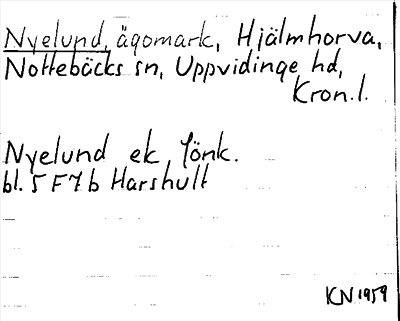 Nyelund, ägomark, Hjälmhorva,
Nottebäcks sn, Uppvidinge hd,
Kron.l.
Nyelund ek, Jönk.
bl. 5 F 7 b Harshult
KN 1959